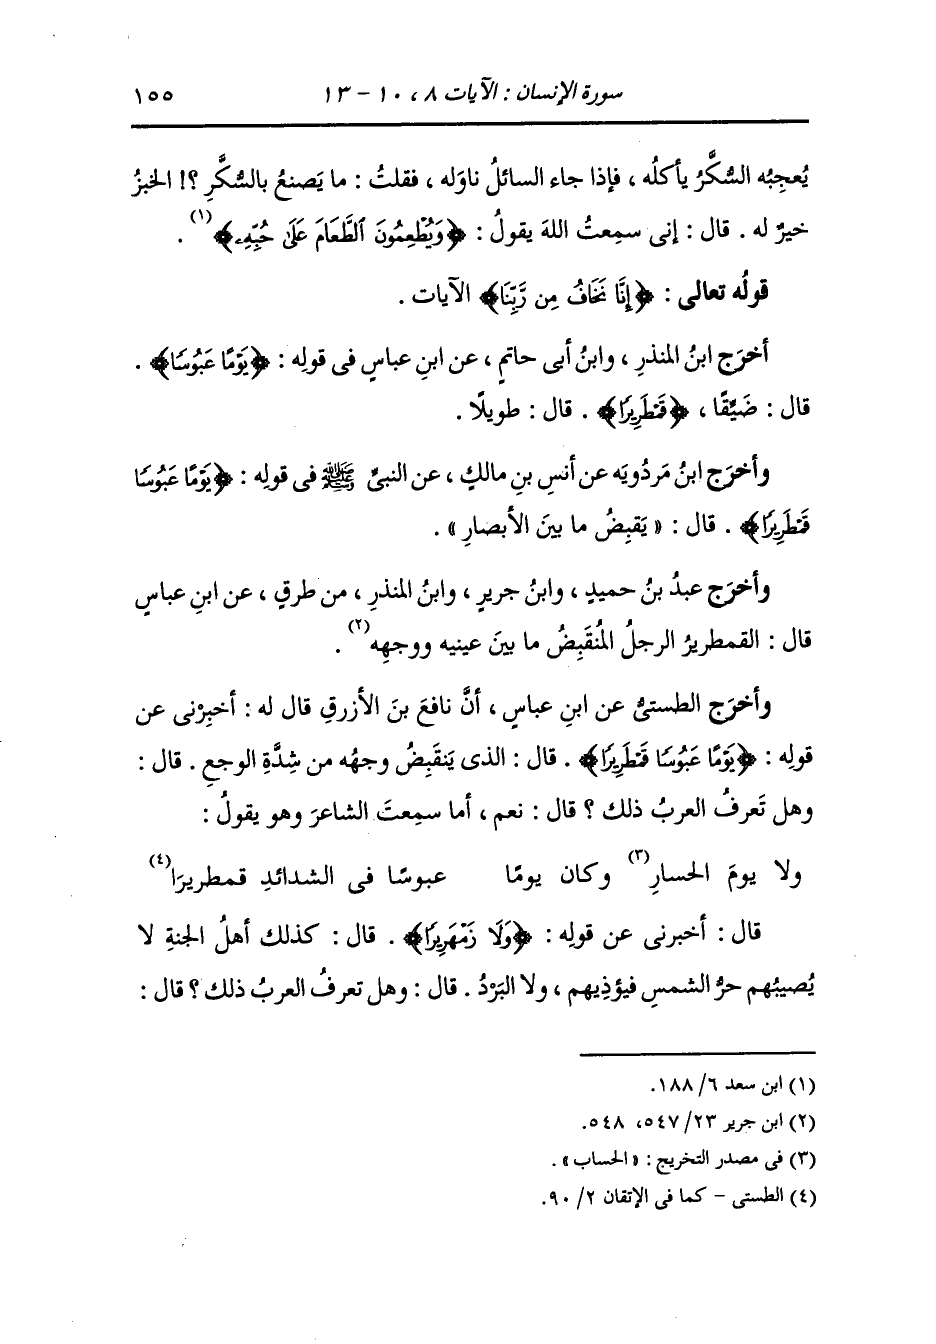 سورة الإنسان : الآيات ٨ ، ١٠ - ١٣ ١٥٥
يُعجِبُه السُّكَّرُ يأكلُه ، فإذا جاء السائلُ ناوَله ، فقلتُ : ما يَصنعُ بالسُّكَّرِ ؟! الخبزُ
خيرٌ له . قال : إنى سمِعتُ اللهَ يقولُ : ﴿وَيُطْعِمُونَ ٱلطَّعَامَ عَلَىٰ حُبِّهِۦ﴾(١) .
قولُه تعالى : ﴿إِنَّا نَخَافُ مِن رَّبِّنَا﴾ الآيات .
أخرَج ابنُ المنذرِ ، وابنُ أبى حاتمٍ ، عن ابنِ عباسٍ فى قولِه : ﴿يَوْمًا عَبُوسًا﴾ .
قال : ضَيِّقًا ، ﴿قَمْطَرِيرًا﴾ . قال : طويلًا .
وأخرَج ابنُ مَردُويَه عن أنسِ بنِ مالكٍ ، عن النبىِّ ﷺ فى قولِه : ﴿يَوْمًا عَبُوسًا
قَمْطَرِيرًا﴾ . قال : « يَقبِضُ ما بينَ الأبصارِ » .
وأخرَج عبدُ بنُ حميدٍ ، وابنُ جريرٍ ، وابنُ المنذرِ ، من طرقٍ ، عن ابنِ عباسٍ
قال : القمطريرُ الرجلُ المُنقَبِضُ ما بينَ عينيه ووجهِه(٢) .
وأخرَج الطستىُّ عن ابنِ عباسٍ ، أنَّ نافعَ بنَ الأزرقِ قال له : أخبِرْنى عن
قولِه : ﴿يَوْمًا عَبُوسًا قَمْطَرِيرًا﴾ . قال : الذى يَنقَبِضُ وجهُه من شِدَّةِ الوجعِ . قال :
وهل تَعرفُ العربُ ذلك ؟ قال : نعم ، أما سمِعتَ الشاعرَ وهو يقولُ :
ولا يومَ الحسارِ(٣) وكان يومًا عبوسًا فى الشدائدِ قمطريرَا(٤)
قال : أخبرنى عن قولِه : ﴿وَلَا زَمْهَرِيرًا﴾ . قال : كذلك أهلُ الجنةِ لا
يُصيبُهم حرُّ الشمسِ فيؤذِيهم ، ولا البَرْدُ . قال : وهل تعرفُ العربُ ذلك ؟ قال :
(١) ابن سعد ٦/ ١٨٨.
(٢) ابن جرير ٢٣/ ٥٤٧، ٥٤٨.
(٣) فى مصدر التخريج : « الحساب » .
(٤) الطستى - كما فى الإتقان ٢/ ٩٠.